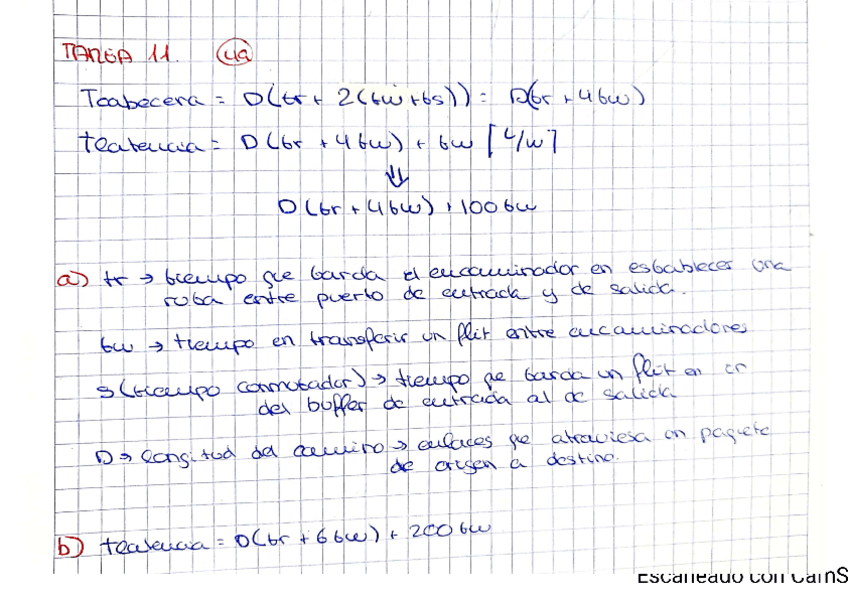 TAREA 11. 4a
Tcabecera = D(tr + 2(tw + ts)) = D(tr + 4tw)
tlatencia = D(tr + 4tw) + tw [L/w]
⇓
D(tr + 4tw) + 100tw
a) tr → tiempo que tarda el encaminador en establecer una
ruta entre puerto de entrada y de salida.
tw → tiempo en transferir un flit entre encaminadores
s (tiempo conmutador) → tiempo que tarda un flit en ir
del buffer de entrada al de salida
D → longitud del camino → enlaces que atraviesa un paquete
de origen a destino.
b) tlatencia = D(tr + 6tw) + 200tw
Escaneado con CamS